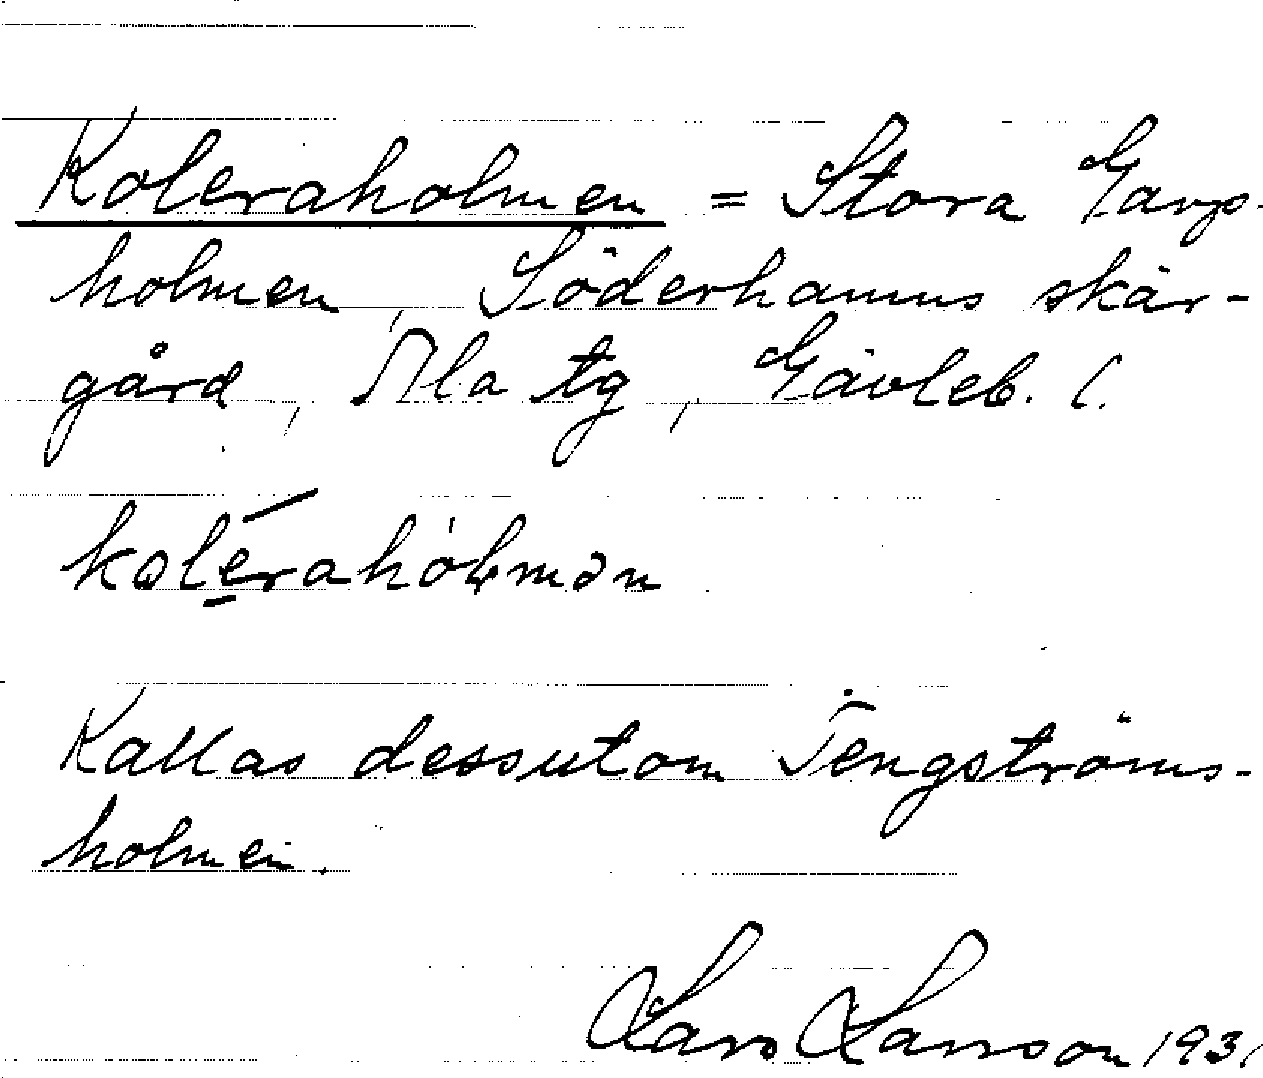 Koleraholmen = Stora Garps-
holmen, Söderhamns skär-
gård, Ala tg, Gävleb. l.
kolérahólmən
Kallas dessutom Tengströms-
holmen.
Lars Larsson 1931